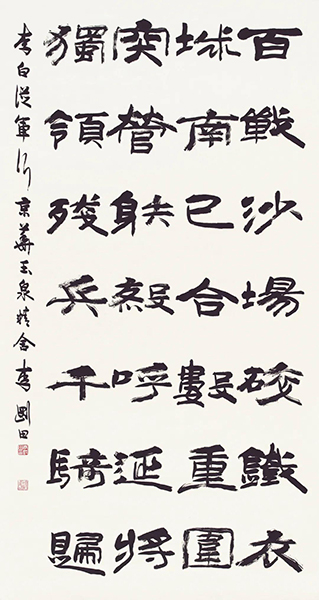 百戰沙場碎鐵衣
城南已合數重圍
突營射殺呼延將
獨領殘兵千騎歸
李白從軍行 京華玉泉精舍 李剛田